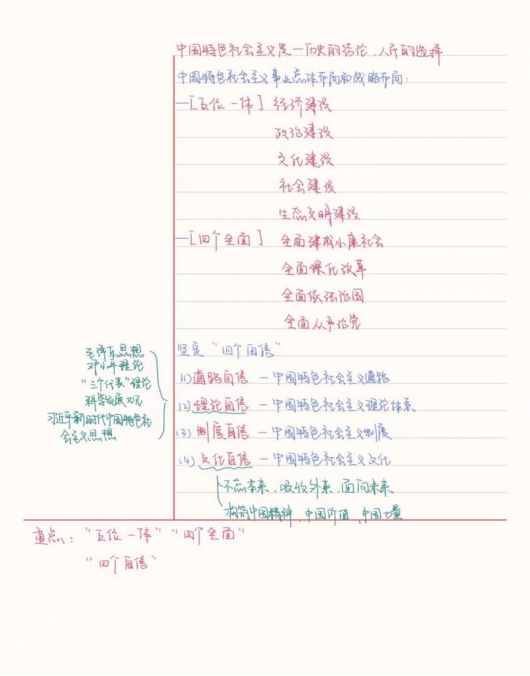 中国特色社会主义是一历史的结论、人民的选择
中国特色社会主义事业总体布局和战略布局:
—[五位一体] 经济建设
政治建设
文化建设
社会建设
生态文明建设
—[四个全面] 全面建成小康社会
全面深化改革
全面依法治国
全面从严治党
坚定“四个自信”
(1)道路自信 — 中国特色社会主义道路
(2)理论自信 — 中国特色社会主义理论体系
(3)制度自信 — 中国特色社会主义制度
(4)文化自信 — 中国特色社会主义文化
不忘本来、吸收外来、面向未来
构筑中国精神、中国价值、中国力量
毛泽东思想
邓小平理论
“三个代表”理论
科学发展观
习近平新时代中国特色社
会主义思想
重点:“五位一体”“四个全面”
“四个自信”